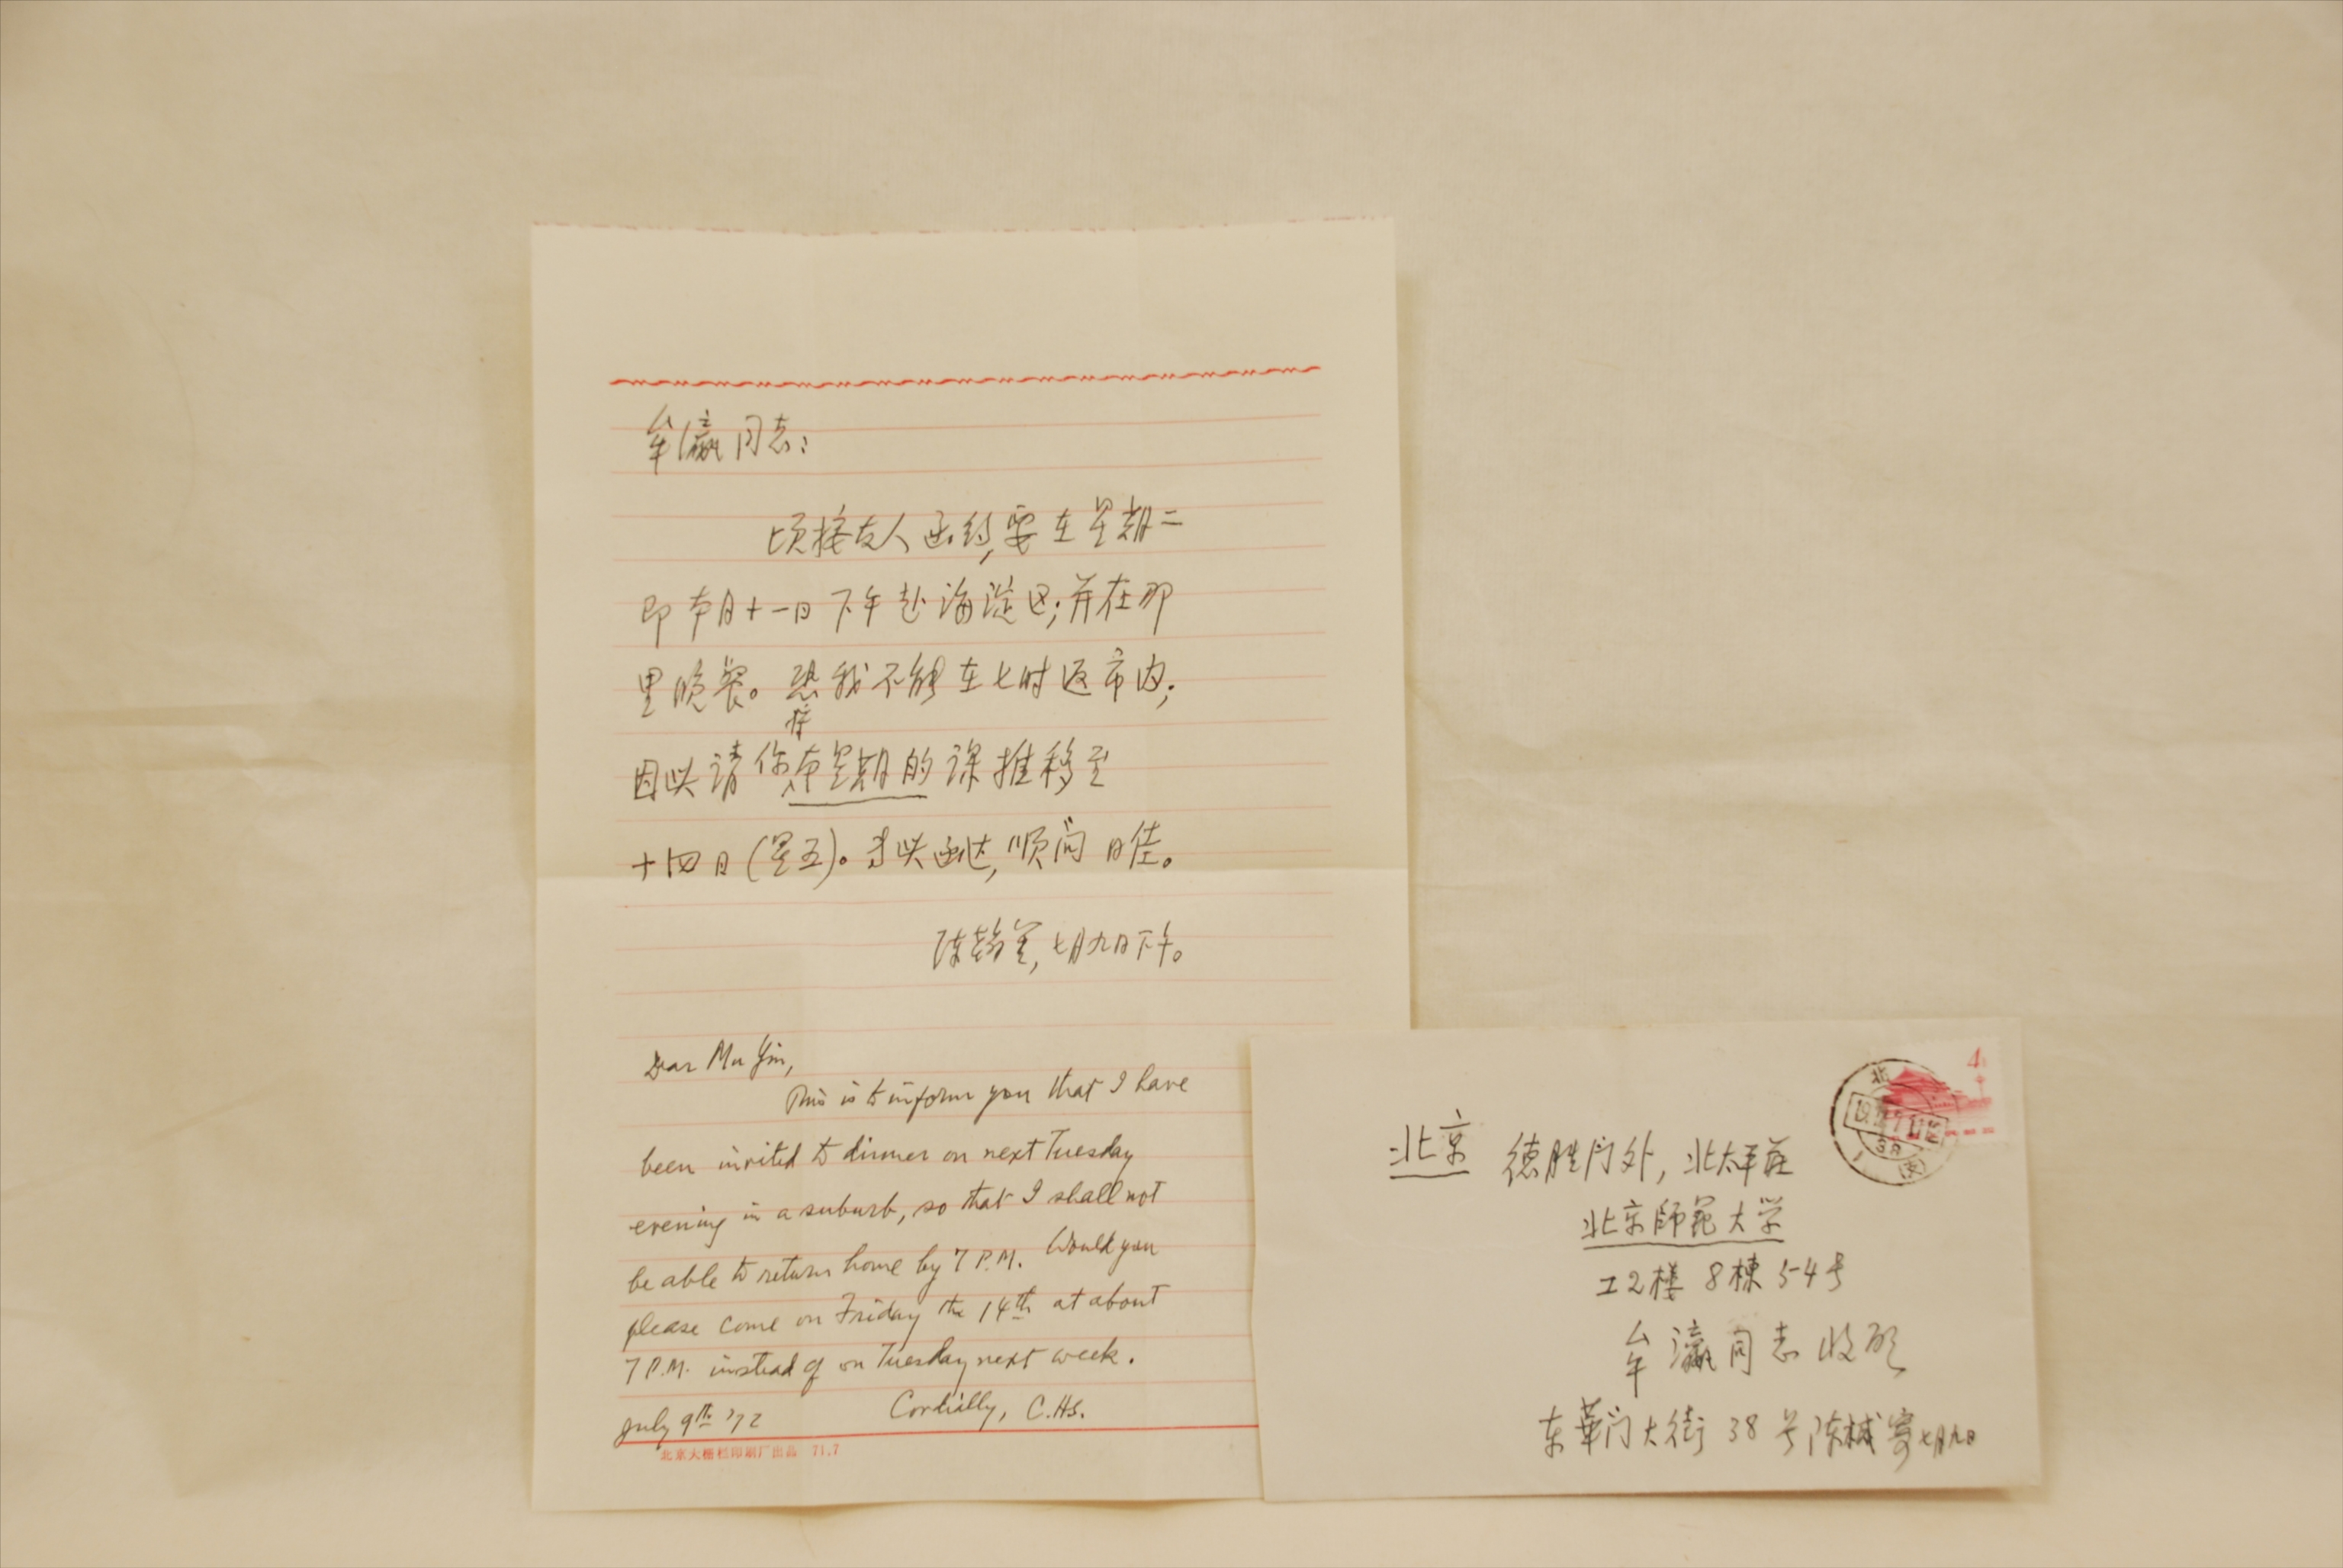 牟瀛同志:
顷接友人函约,要在星期二
即本月十一日下午赴海淀区;并在那
里晚餐。恐我不能在七时返市内;
因此请你将本星期的课推移至
十四日(星五)。专此函达,顺问日佳。
陈翰笙,七月九日下午。
Dear Mu Yin,
This is to inform you that I have
been invited to dinner on next Tuesday
evening in a suburb, so that I shall not
be able to return home by 7 P.M. Would you
please come on Friday the 14th at about
7 P.M. instead of on Tuesday next week.
July 9th '72 Cordially, C.HS.
北京大栅栏印刷厂出品 71.7
4
北京 德胜门外,北太平庄
北京師范大学
工2楼 8栋 54号
牟瀛同志收启
东華门大街 38号陈 寄七月九日